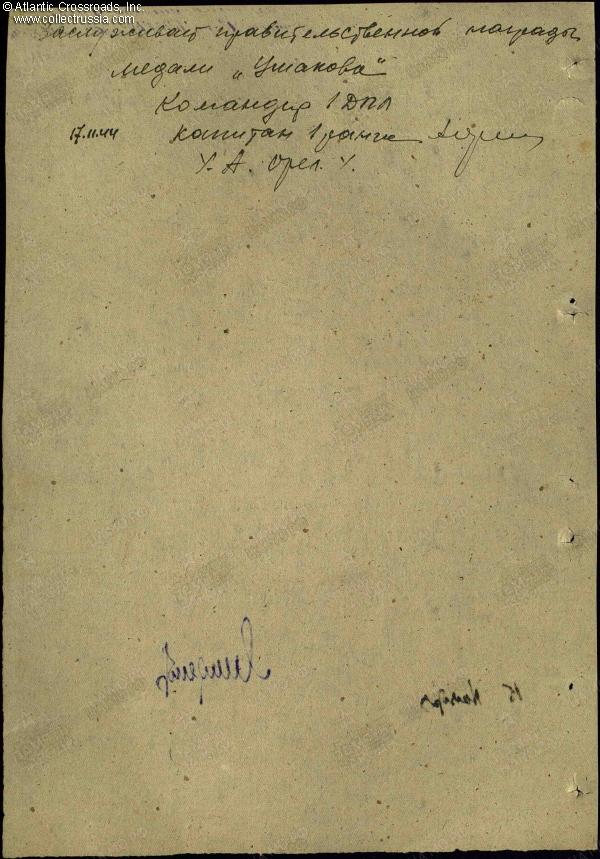 © Atlantic Crossroads, Inc.
www.collectrussia.com
заслуживает правительственной награды
медали „Ушакова“
Командир 1 ДПЛ
17.11.44 капитан 1 ранга
/. А. Орел. /.
15 Ноября